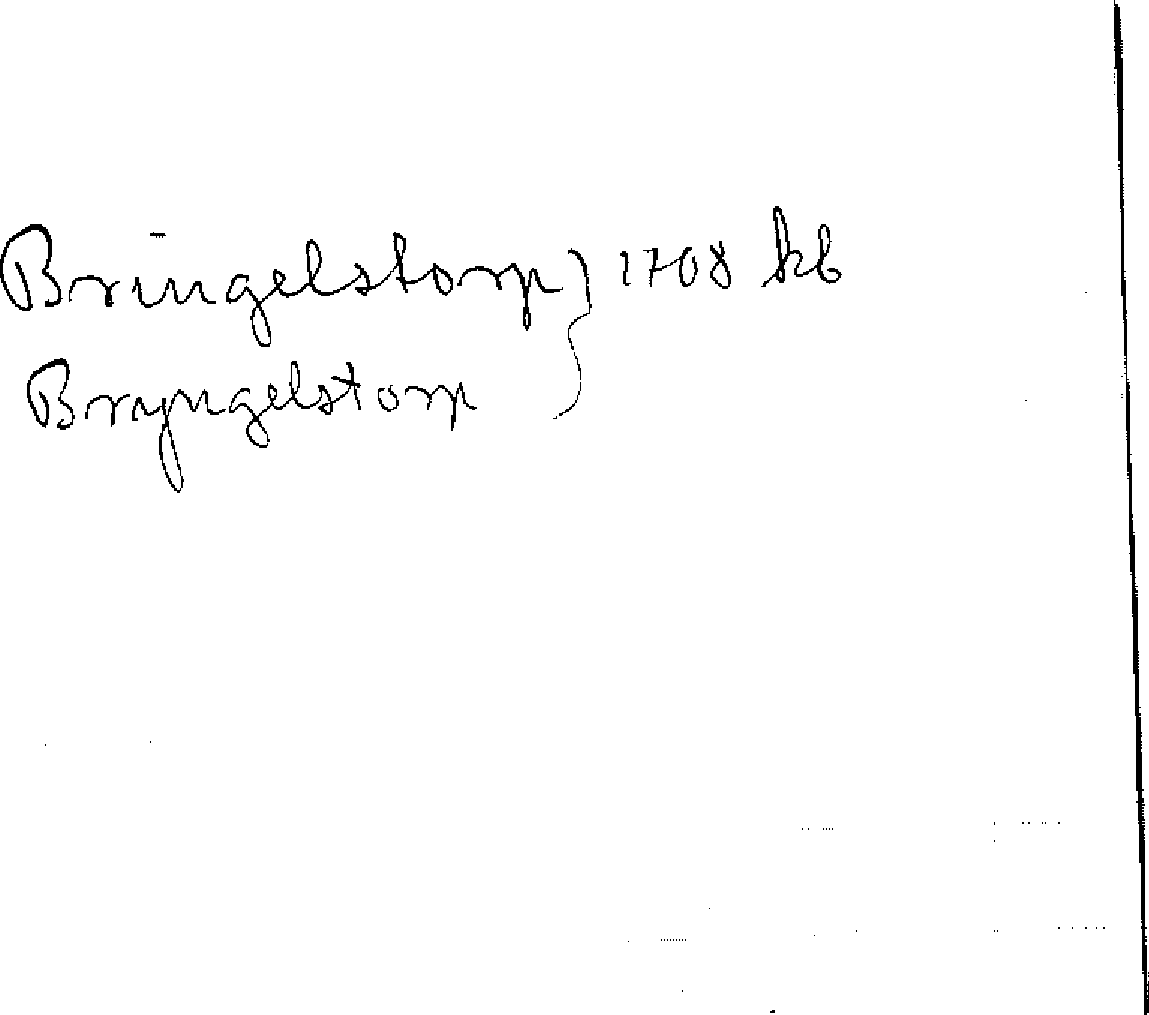 Bringelstorp } 1708 kb
Bryngelstorp